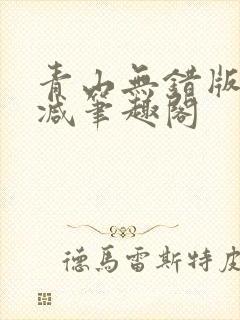 青山無錯版
減筆趣閣
德馬雷斯特皮